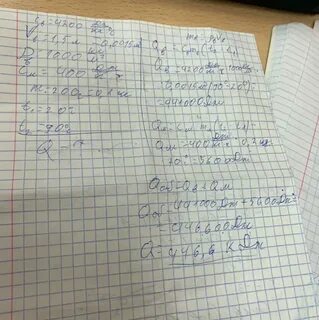 Cв=4200 Дж/кг°C
V=1,5л=0,0015м³
ρ=1000 кг/м³
Cм=400
m=200г=0,2кг
t₁=20°
t₂=90°
Q-?
m₂=ρ₂V₂
Qв=Cвm₂(t₂-t₁)
Qв=4200 Дж/кг°C·1000
0,0015м³(90°-20°)=
=441000Дж
Qм=Cм m₁(t₂-t₁)=
Qм=400 · 0,2кг·
70°=5600Дж
Qоб=Qв+Qм
Qоб=441000Дж+5600Дж=
=446,600Дж
Q=446,6 кДж